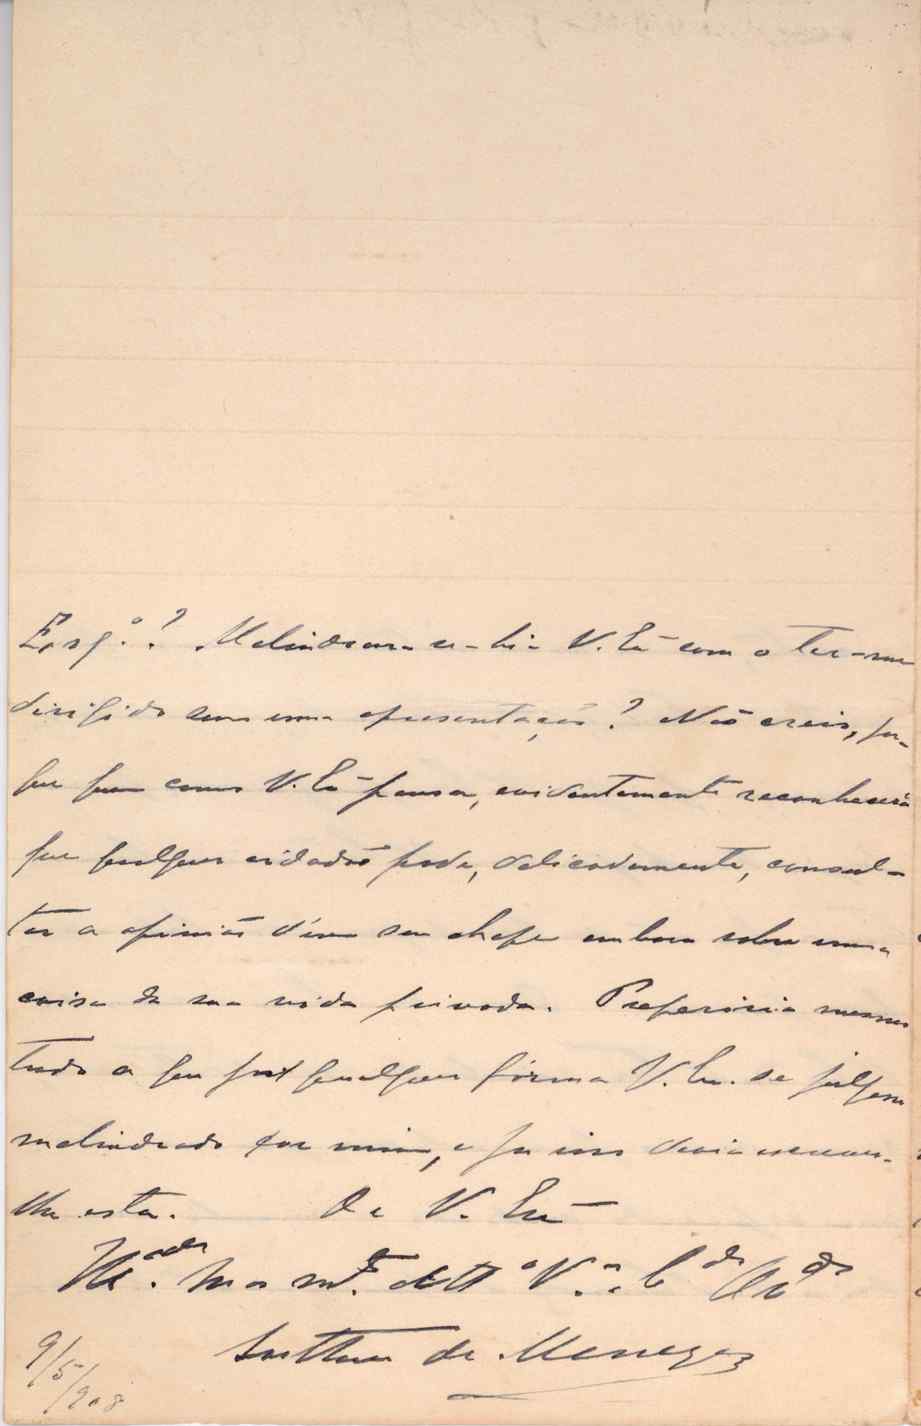 Melindrou-se-hia V. Exª com o ter-me
dirigido sem uma apresentação? Não creio, por-
que quem como V. Exª pensa, evidentemente reconhecerá
que qualquer cidadão pode, delicadamente, consul-
tar a opinião d'um seu chefe embora sobre uma
coisa da sua vida privada. Preferiria mesmo
tudo a que por qualquer fórma V. Ex. se julgasse
melindrado por mim, e por isso devia escrever-
lhe esta. De V. Exª
V.
de Menezes
9/5/908